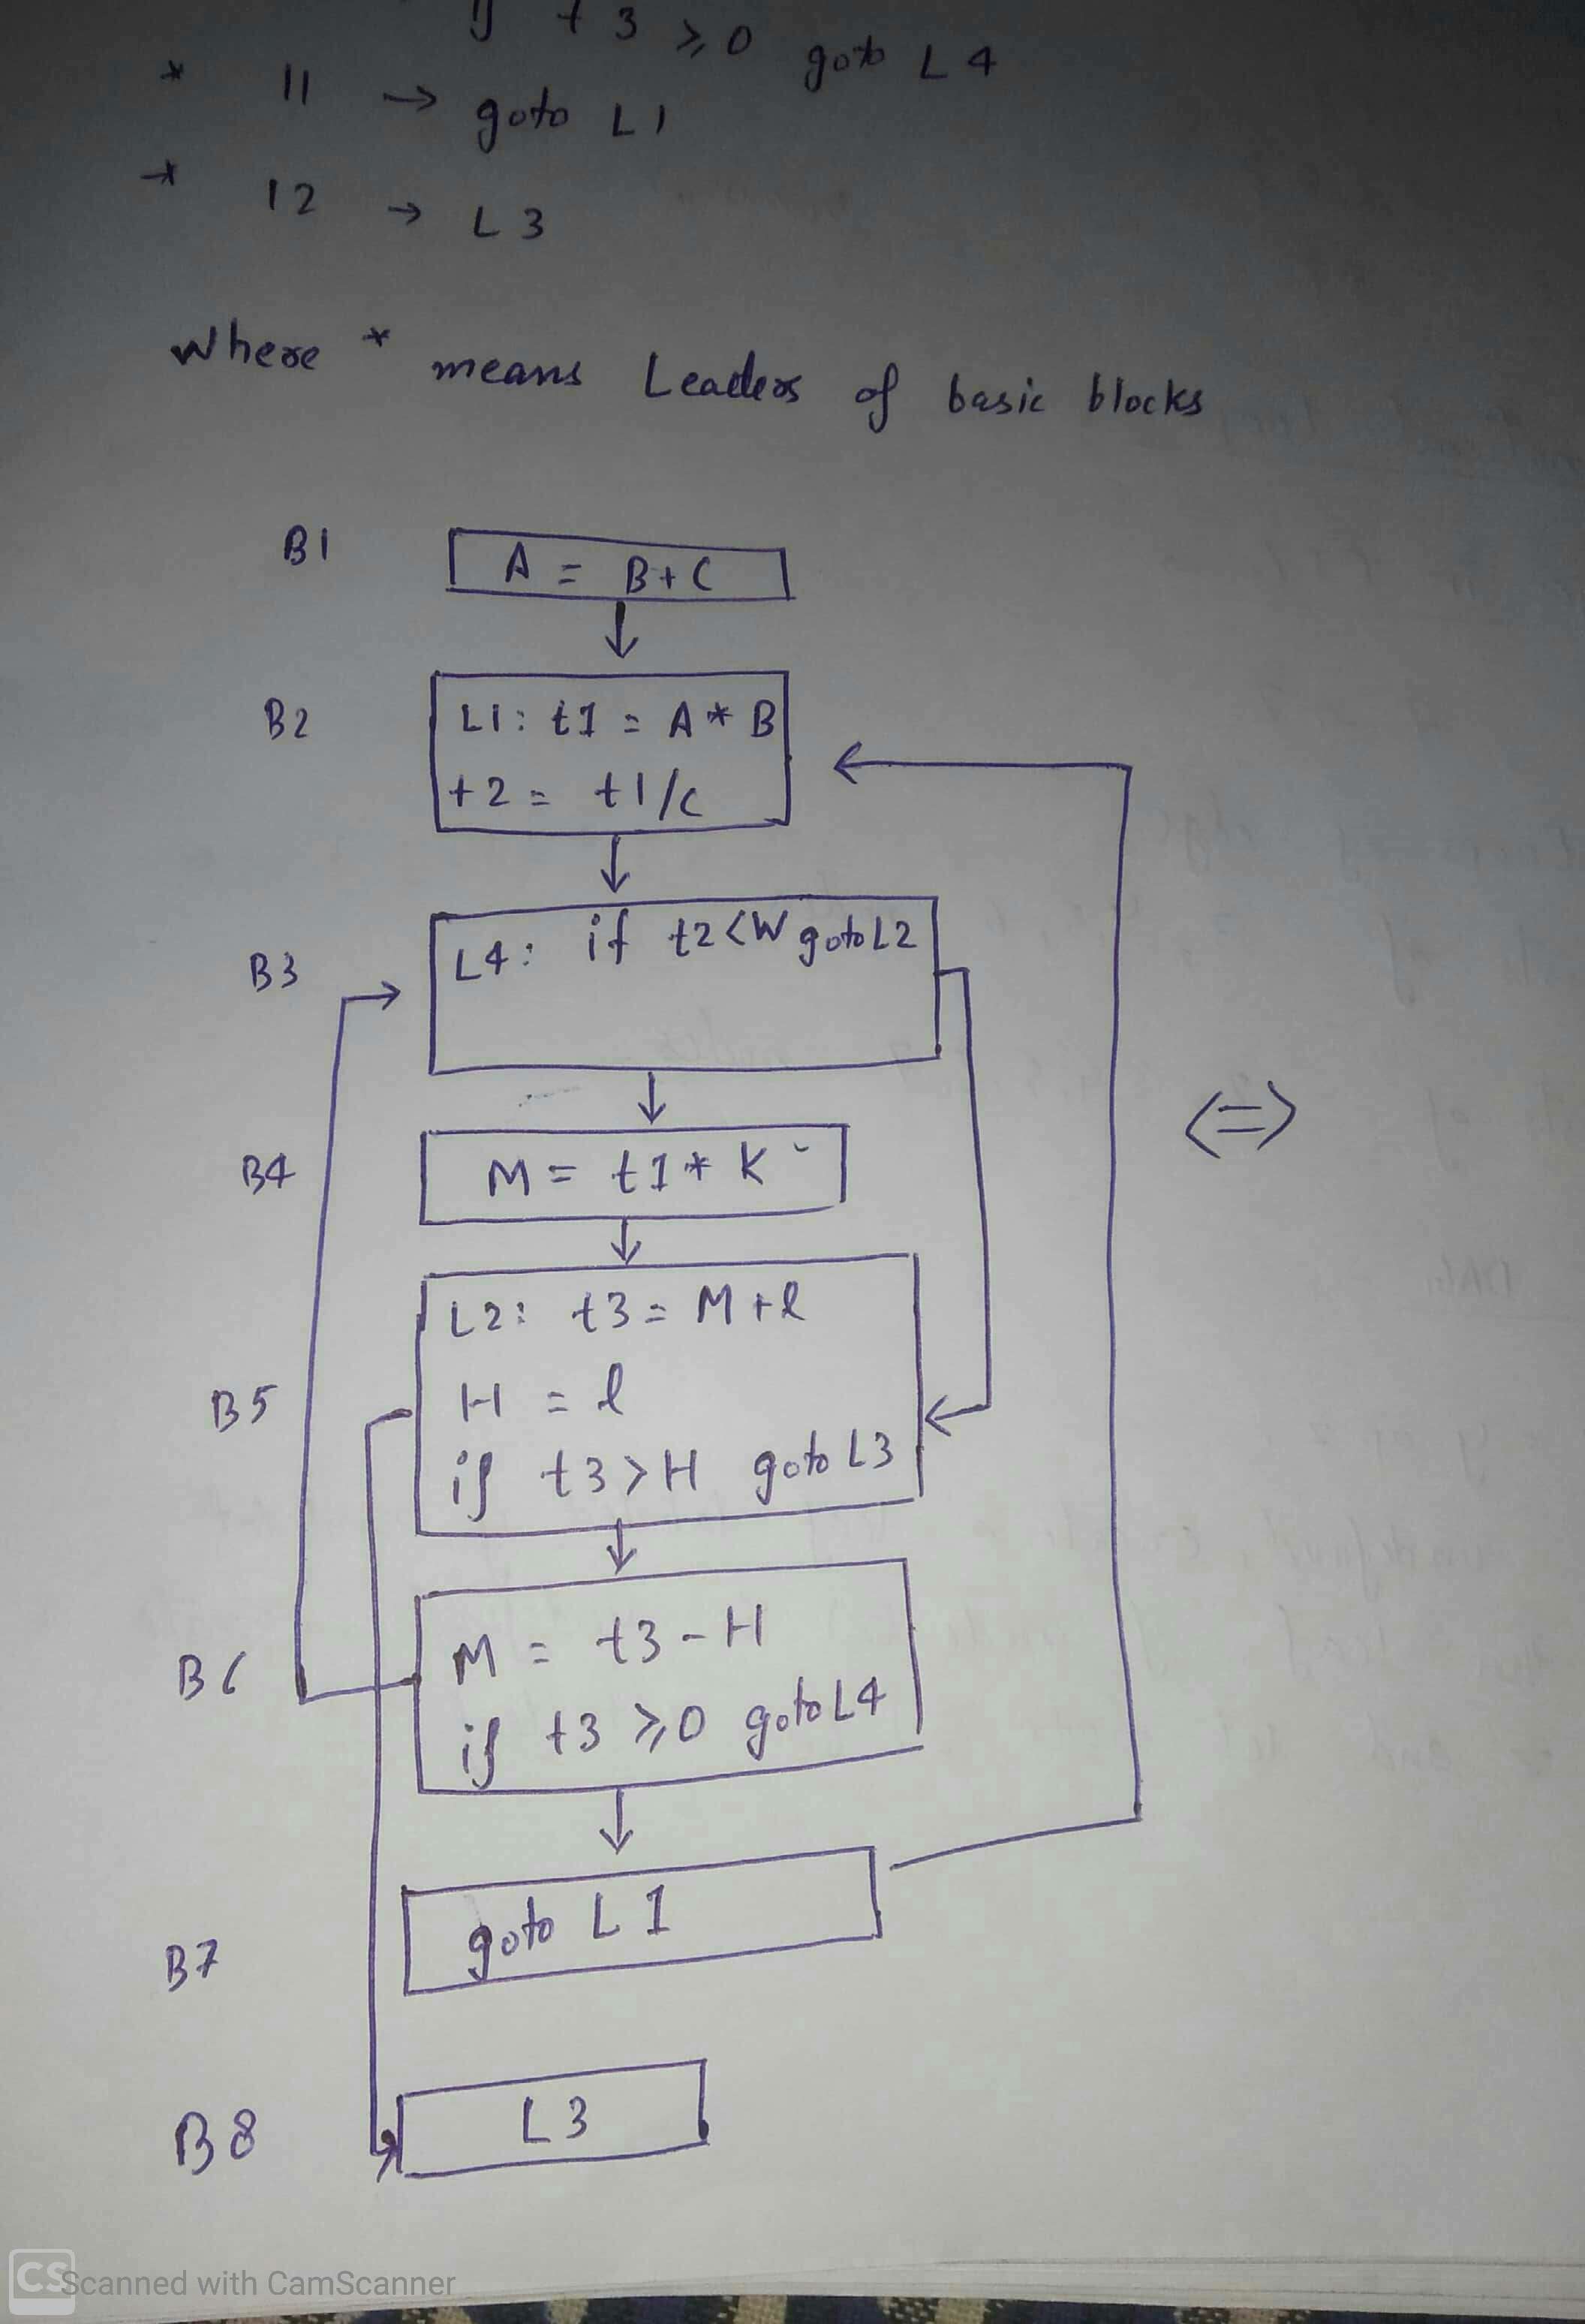 t3 >= 0 goto L4
* 11 → goto L1
* 12 → L3
where * means Leaders of basic blocks
B1 A = B+C
B2 L1: t1 = A * B
t2 = t1/C
B3 L4: if t2<W goto L2
B4 M = t1 * K
B5 L2: t3 = M+l
H = l
if t3>H goto L3
B6 M = t3-H
if t3 >= 0 goto L4
B7 goto L1
B8 L3
<=>
CS Scanned with CamScanner